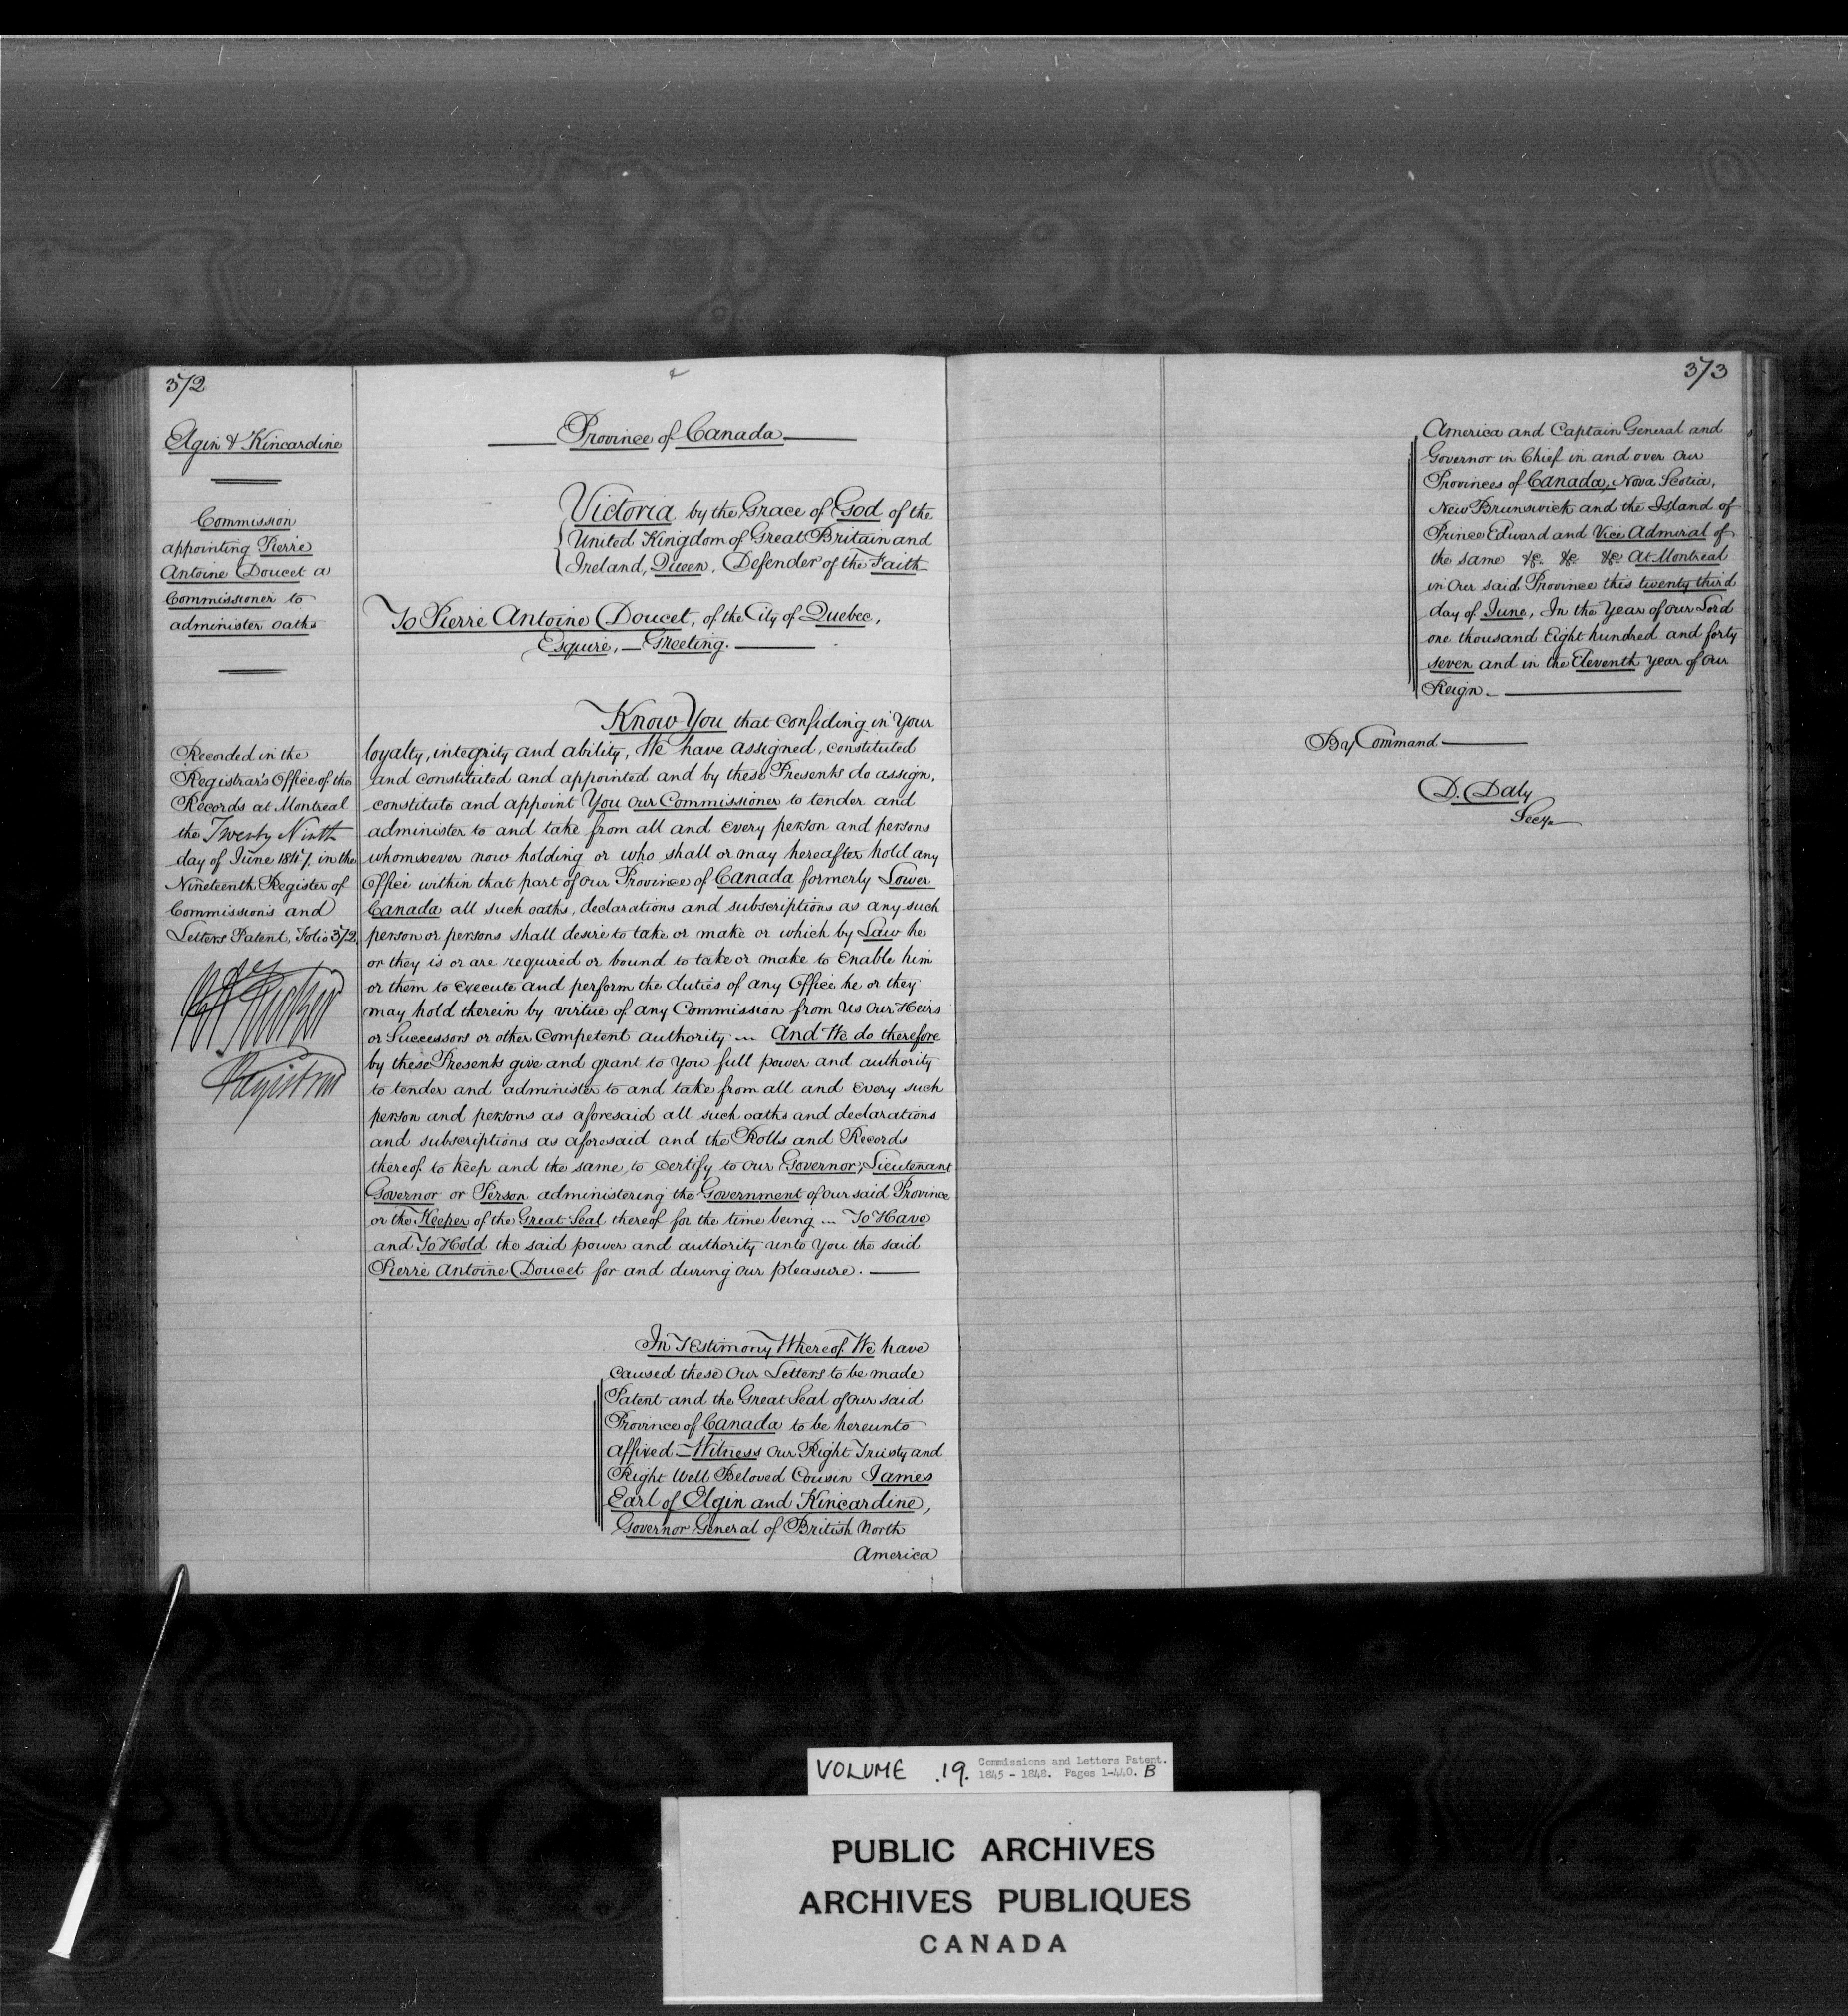 372
Elgin & Kincardine
Commission
appointing Pierre
Antoine Doucet a
Commissioner to
administer oaths
Recorded in the
Registrar's Office of the
Records at Montreal
the Twenty Ninth
day of June 1847. in the
Nineteenth Register of
Commissions and
Letters Patent, Folio 372.
Registrar
Province of Canada
Victoria by the Grace of God of the
United Kingdom of Great Britain and
Ireland, Queen, Defender of the Faith
To Pierre Antoine Doucet, of the City of Quebec,
Esquire, — Greeting.
Know You that confiding in Your
loyalty, integrity and ability, We have assigned, constituted
and constituted and appointed and by these Presents do assign,
constitute and appoint You our Commissioner to tender and
administer to and take from all and every person and persons
whomsoever now holding or who shall or may hereafter hold any
Office within that part of our Province of Canada formerly Lower
Canada all such oaths, declarations and subscriptions as any such
person or persons shall desire to take or make or which by Law he
or they is or are required or bound to take or make to Enable him
or them to execute and perform the duties of any Office he or they
may hold therein by virtue of any Commission from Us Our Heirs
or Successors or other Competent authority ... And We do therefore
by these Presents give and grant to You full power and authority
to tender and administer to and take from all and every such
person and persons as aforesaid all such oaths and declarations
and subscriptions as aforesaid and the Rolls and Records
thereof to keep and the same to certify to our Governor, Lieutenant
Governor or Person administering the Government of our said Province
or the Keeper of the Great Seal thereof for the time being ... To Have
and To Hold the said power and authority unto You the said
Pierre Antoine Doucet for and during our pleasure.
In Testimony Whereof We have
caused these Our Letters to be made
Patent and the Great Seal of our said
Province of Canada to be hereunto
affixed — Witness Our Right Trusty and
Right Well Beloved Cousin James
Earl of Elgin and Kincardine,
Governor General of British North
America
373
America and Captain General and
Governor in Chief in and over Our
Provinces of Canada, Nova Scotia,
New Brunswick and the Island of
Prince Edward and Vice Admiral of
the same &c. &c &c At Montreal
in Our said Province this twenty third
day of June, In the Year of our Lord
one thousand Eight hundred and forty
seven and in the Eleventh year of Our
Reign.
By Command
D. Daly
Secy.
VOLUME .19. Commissions and Letters Patent.
1845 - 1848. Pages 1-440. B
PUBLIC ARCHIVES
ARCHIVES PUBLIQUES
CANADA